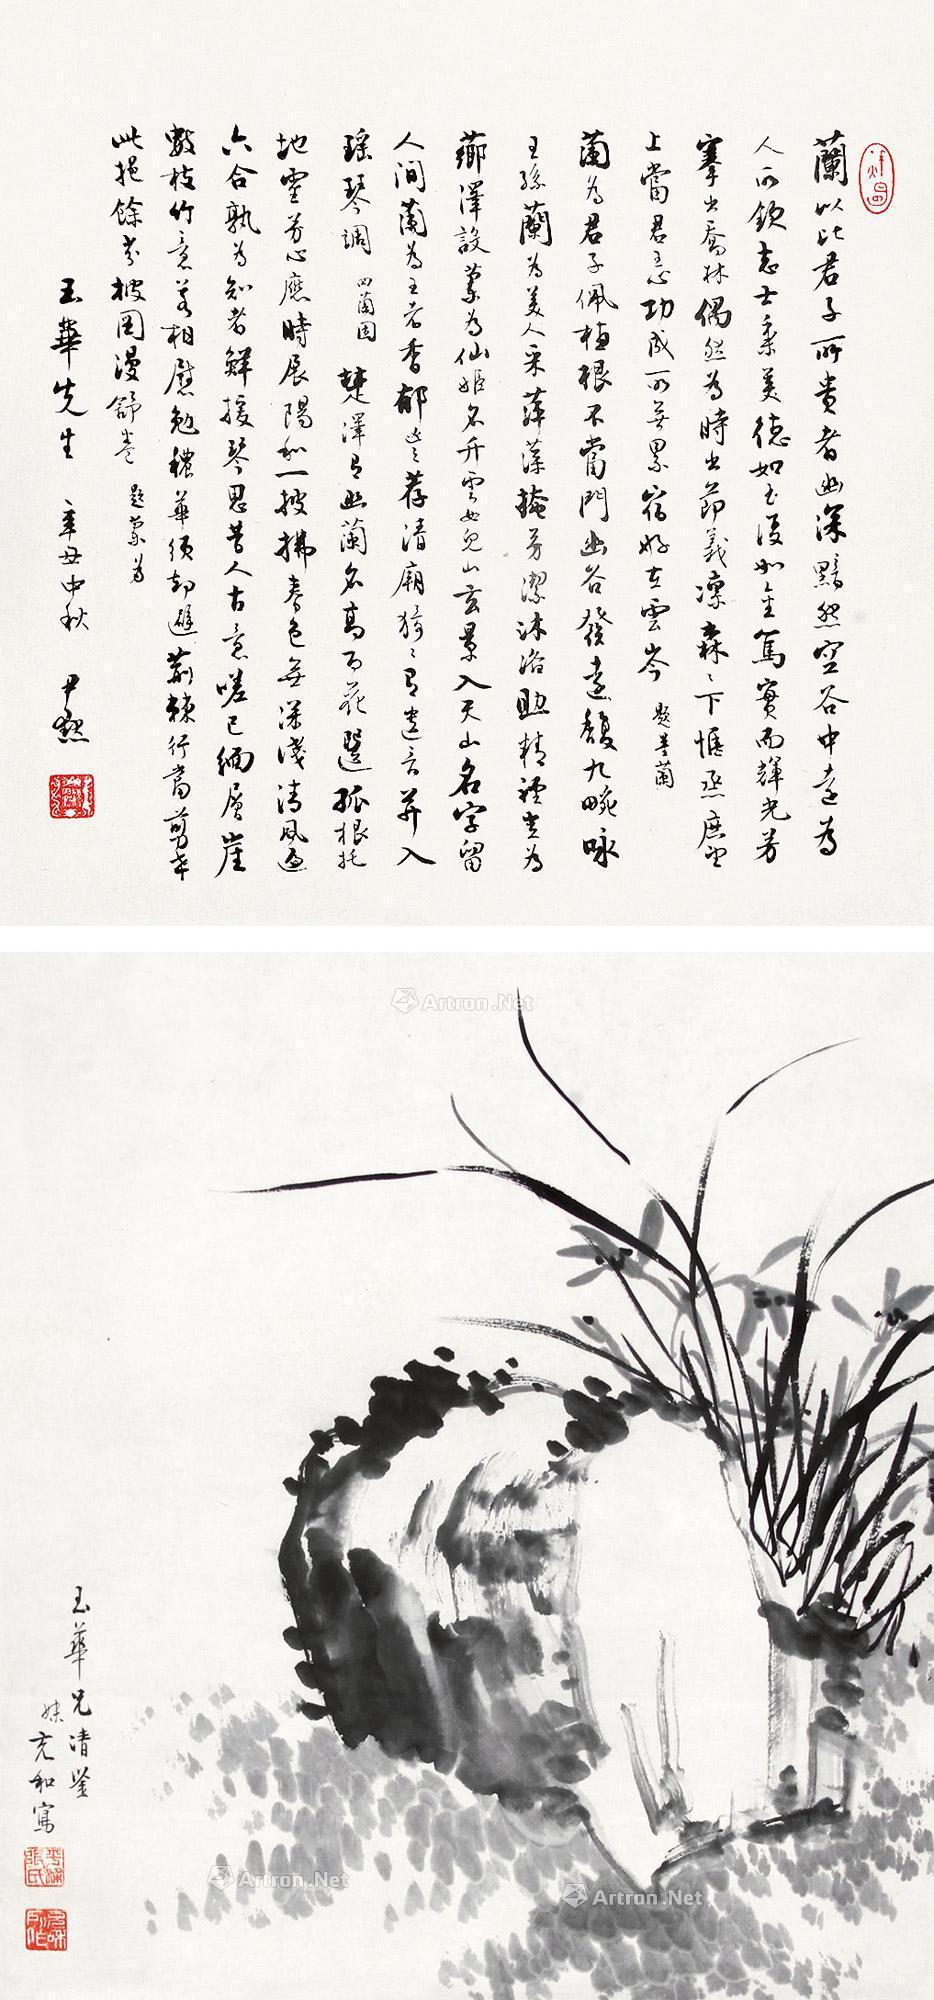 蘭以比君子所貴者幽深黯然空谷中遠為
人所欽志士秉美德如玉復如金篤實而輝光芳
搴出喬林偶然為時出節義凜森森下愜烝庶望
上當君王心功成所無累宿好在雲岑 題墨蘭
蘭為君子佩植根不當門幽谷發遠馥九畹咏
王孫蘭為美人采萍藻掩芳潔沐浴助精禋芳為
薌澤設蘭為仙姬名升雲女兒山玄景入天山名字留
人間蘭為王者香郁郁荐清廟猗猗有遺音并入
瑤琴調 四蘭圖 楚澤有幽蘭名高百花選孤根托
地靈芳心應時展陽和一披拂春色無深淺清風過
六合孰為知者鮮援琴思昔人古意嗟已緬層崖
數枝竹意若相慰勉穠華須却避荊棘行當剪并
此挹餘芬披圖漫舒卷 題蘭為
玉華先生 辛丑中秋 尹默
玉華兄清鑒
妹充和寫
Artron.Net
Artron.Net
Artron.Net